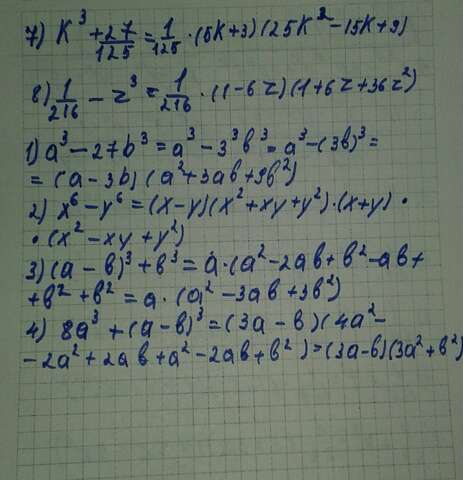 7) K³ + 27/125 = 1/125 · (5K+3)(25K² - 15K + 9)
8) 1/216 - z³ = 1/216 · (1 - 6z)(1 + 6z + 36z²)
1) a³ - 27b³ = a³ - 3³b³ = a³ - (3b)³ =
= (a - 3b)(a² + 3ab + 9b²)
2) x⁶ - y⁶ = (x - y)(x² + xy + y²)·(x + y) ·
· (x² - xy + y²)
3) (a - b)³ + b³ = a·(a² - 2ab + b² - ab +
+ b² + b² = a·(a² - 3ab + 3b²)
4) 8a³ + (a - b)³ = (3a - b)(4a² -
- 2a² + 2ab + a² - 2ab + b²) = (3a - b)(3a² + b²)